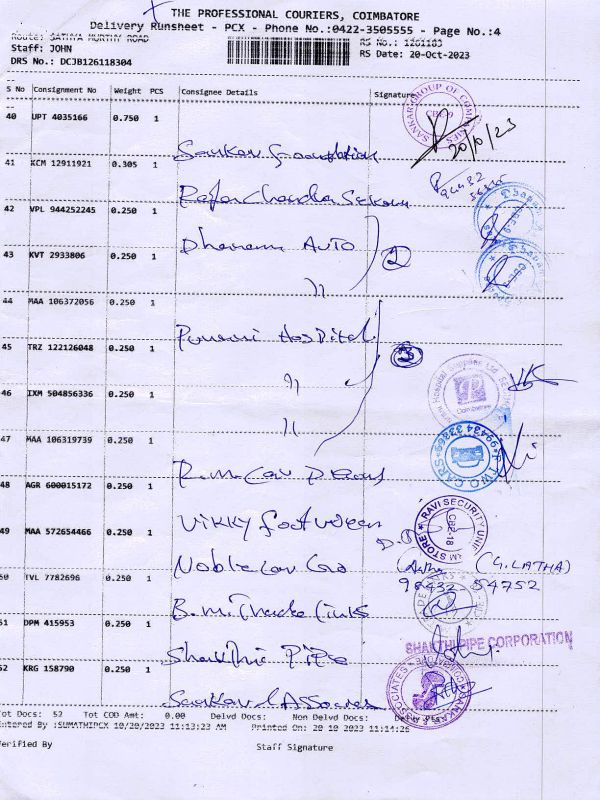 THE PROFESSIONAL COURIERS, COIMBATORE
Delivery Runsheet - PCX - Phone No.:0422-3505555 - Page No.:4
Route: SATHYA MURTHY ROAD
Staff: JOHN
RS No.: 1261183
DRS No.: DCJB126118304
RS Date: 20-Oct-2023
S No Consignment No Weight PCS Consignee Details Signature
40 UPT 4035166 0.750 1
SANKAR GROUP OF COMPANIES
CBE-9
20/10/23
Sankar Foundation
41 KCM 12911921 0.305 1
94432
Raja Chandra Sekaran
42 VPL 944252245 0.250 1
Dhanam AUTO
2
43 KVT 2933806 0.250 1
"
44 MAA 106372056 0.250 1
Hospital
3
45 TRZ 122126048 0.250 1
"
46 IXM 504856336 0.250 1
Coimbatore
"
47 MAA 106319739 0.250 1
TWO CARS
R.M. Car
48 AGR 600015172 0.250 1
RAVI SECURITY
CBE-18
Vikky footwear
49 MAA 572654466 0.250 1
Noble Car Care
(G. LATHA)
98432 54752
50 TVL 7782696 0.250 1
B.M. Thacke Links
51 DPM 415953 0.250 1
SHAKTHI PIPE CORPORATION
Shakthi Pipe
52 KRG 158790 0.250 1
Sankar & Associates
Tot Docs: 52 Tot COD Amt: 0.00 Delvd Docs: Non Delvd Docs:
Entered By :SUMATHIPCX 10/20/2023 11:13:23 AM Printed On: 20-10-2023 11:14:26
Verified By Staff Signature